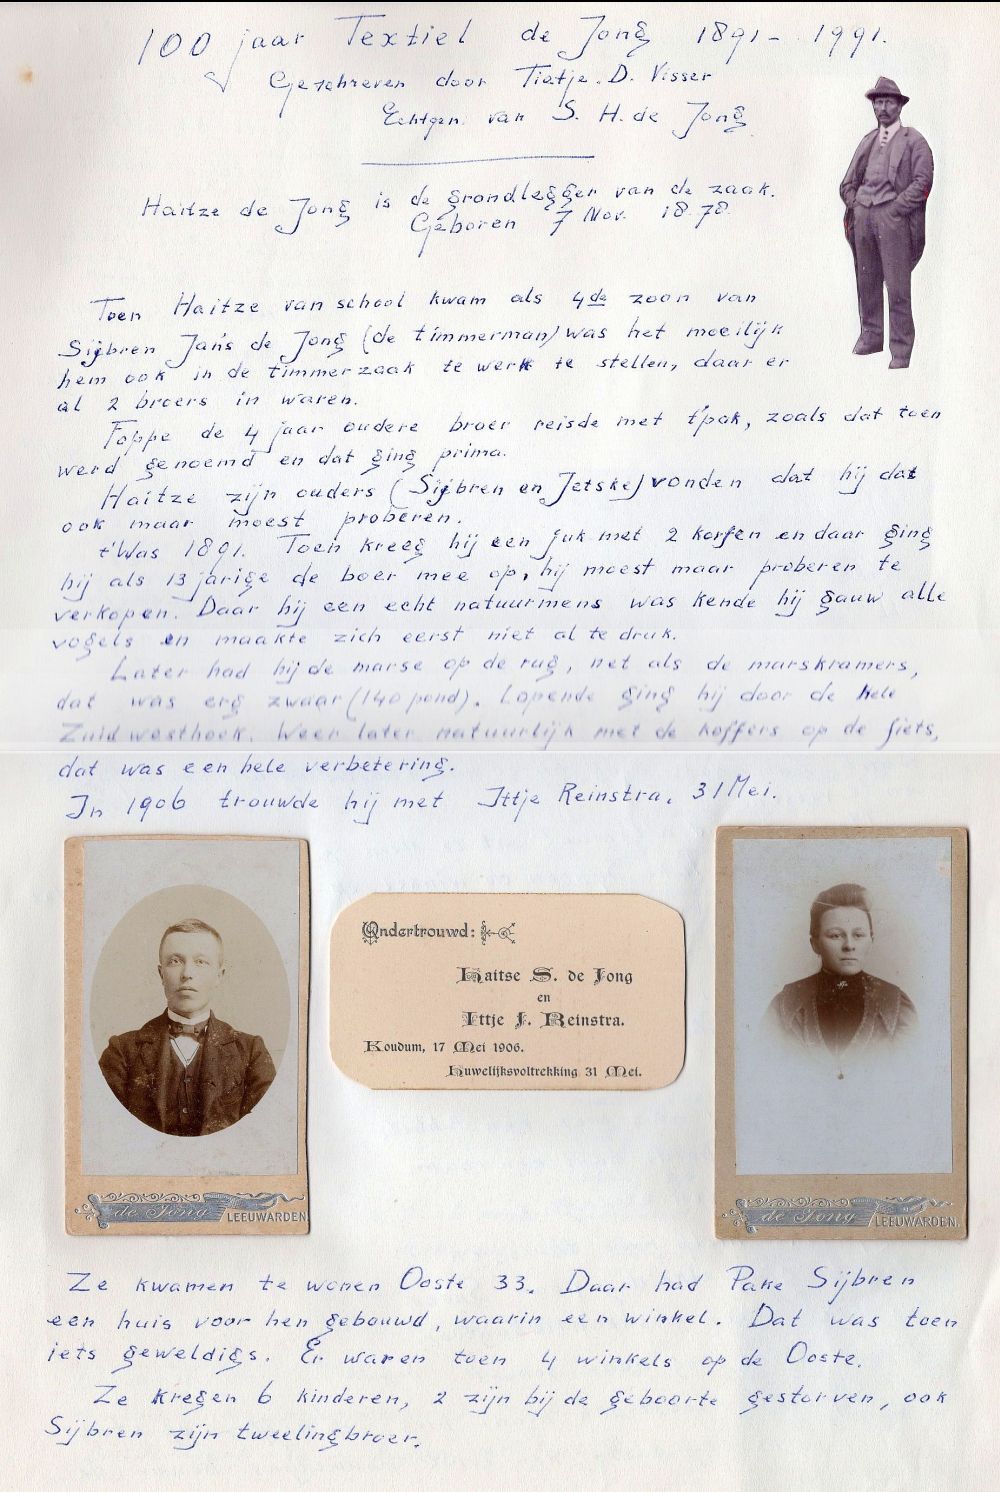 100 jaar Textiel de Jong 1891 - 1991.
Geschreven door Tietje. D. Visser
Echtgen. van S. H. de Jong
Haitze de Jong is de grondlegger van de zaak.
Geboren 7 Nov. 1878.
Toen Haitze van school kwam als 4de zoon van
Sijbren Jans de Jong (de timmerman) was het moeilijk
hem ook in de timmerzaak te werk te stellen, daar er
al 2 broers in waren.
Foppe de 4 jaar oudere broer reisde met t'pak, zoals dat toen
werd genoemd en dat ging prima.
Haitze zijn ouders (Sijbren en Jetske) vonden dat hij dat
ook maar moest proberen.
t'Was 1891. Toen kreeg hij een juk met 2 korfen en daar ging
hij als 13 jarige de boer mee op, hij moest maar proberen te
verkopen. Daar hij een echt natuurmens was kende hij gauw alle
vogels en maakte zich eerst niet al te druk.
Later had hij de marse op de rug, net als de marskramers,
dat was erg zwaar (140 pond). Lopende ging hij door de hele
Zuid westhoek. Weer later natuurlijk met de koffers op de fiets,
dat was een hele verbetering.
In 1906 trouwde hij met Ittje Reinstra, 31 Mei.
Ondertrouwd:
Haitse S. de Jong
en
Ittje J. Reinstra.
Koudum, 17 Mei 1906.
Huwelijksvoltrekking 31 Mei.
de Jong LEEUWARDEN
de Jong LEEUWARDEN.
Ze kwamen te wonen Ooste 33. Daar had Pake Sijbren
een huis voor hen gebouwd, waarin een winkel. Dat was toen
iets geweldigs. Er waren toen 4 winkels op de Ooste.
Ze kregen 6 kinderen, 2 zijn bij de geboorte gestorven, ook
Sijbren zijn tweelingbroer.